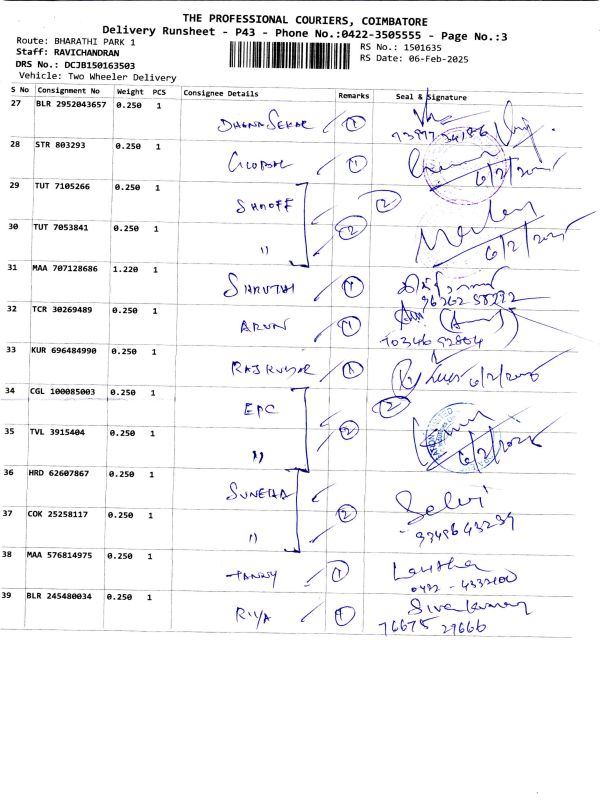 THE PROFESSIONAL COURIERS, COIMBATORE
Delivery Runsheet - P43 - Phone No.:0422-3505555 - Page No.:3
Route: BHARATHI PARK 1
RS No.: 1501635
Staff: RAVICHANDRAN
RS Date: 06-Feb-2025
DRS No.: DCJB150163503
Vehicle: Two Wheeler Delivery
S No Consignment No Weight PCS Consignee Details Remarks Seal & Signature
27 BLR 2952043657 0.250 1 DHANASEKAR 1
28 STR 803293 0.250 1 GLOBAL 1
6/2/2025
29 TUT 7105266 0.250 1 SHROFF 2
30 TUT 7053841 0.250 1 " 2
6/2/2025
31 MAA 707128686 1.220 1 SHRUTHI 1
96262 58292
32 TCR 30269489 0.250 1 ARUN 1
33 KUR 696484990 0.250 1 RAJKUMAR 1 6/2/2025
34 CGL 100085003 0.250 1 EPC 2
35 TVL 3915404 0.250 1 " 2
6/2/2025
36 HRD 62607867 0.250 1 SUNEHA Selvi
37 COK 25258117 0.250 1 " 2
38 MAA 576814975 0.250 1 1
0422 - 4332100
39 BLR 245480034 0.250 1 RIYA 1 Sivakumar
76675 27666